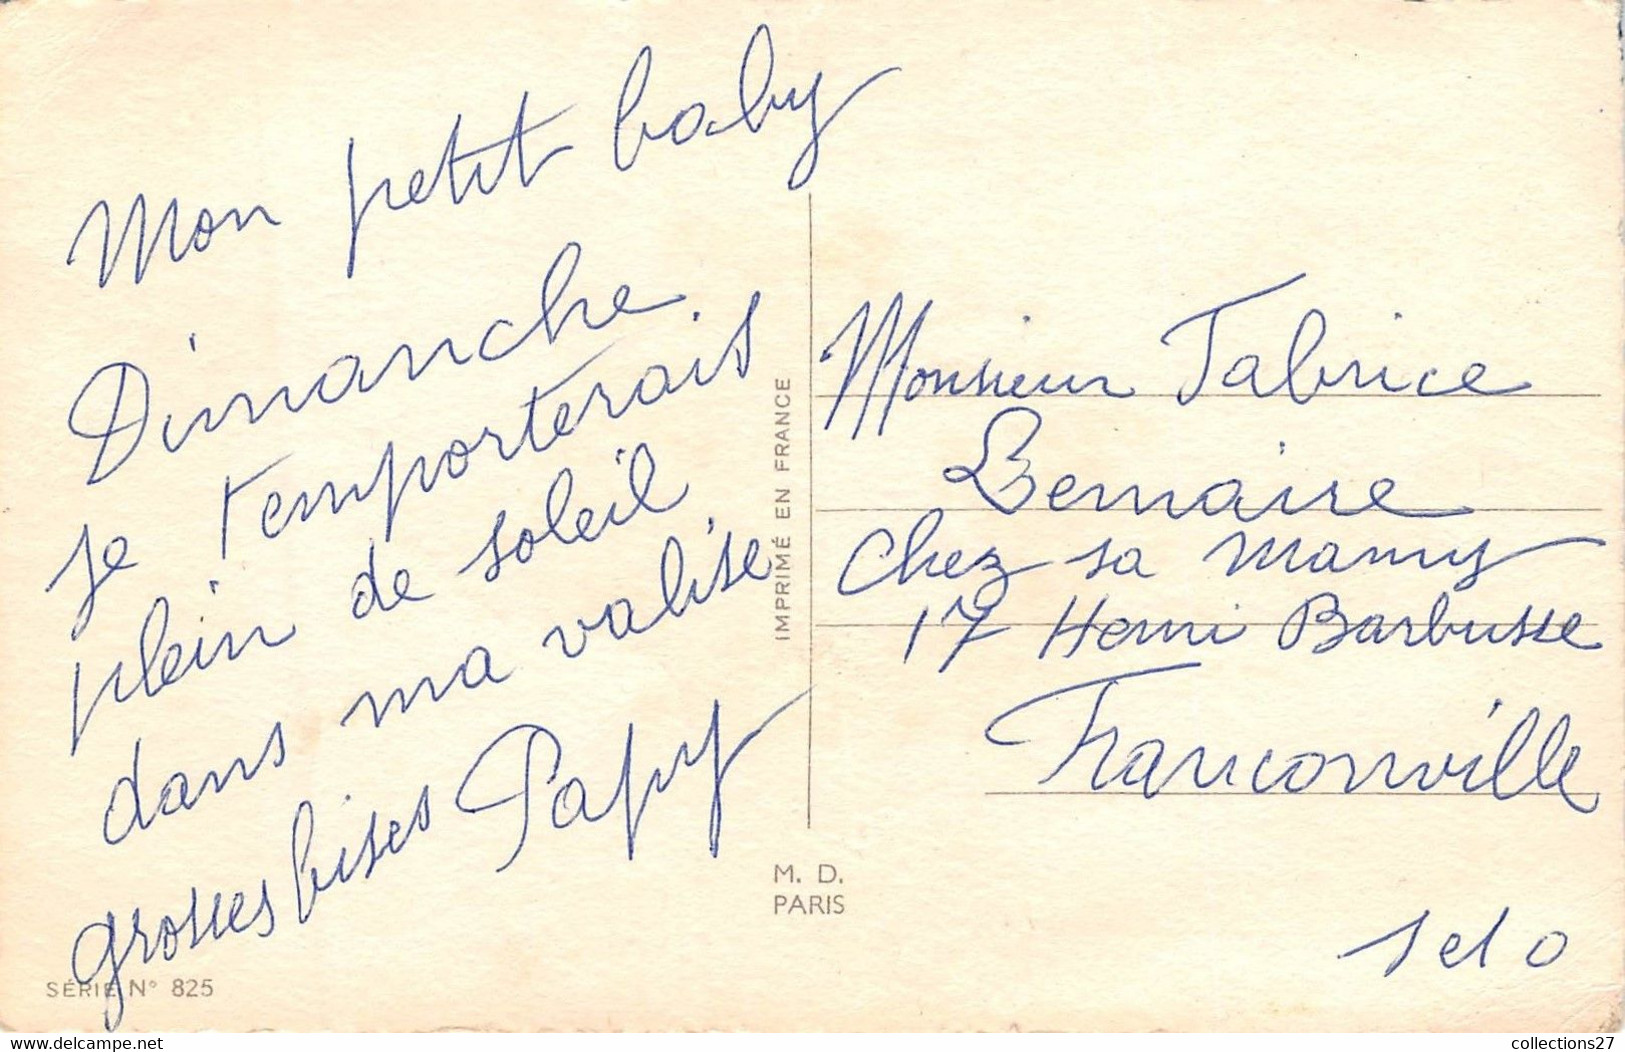 Mon petit baby
Dimanche
je temporterais
plein de soleil
dans ma valise
grosses bises Papy
IMPRIMÉ EN FRANCE
Monsieur Fabrice
Lemaire
Chez sa mamy
17 Henri Barbusse
Franconville
S et O
M. D.
PARIS
SÉRIE N° 825
www.delcampe.net
collections27